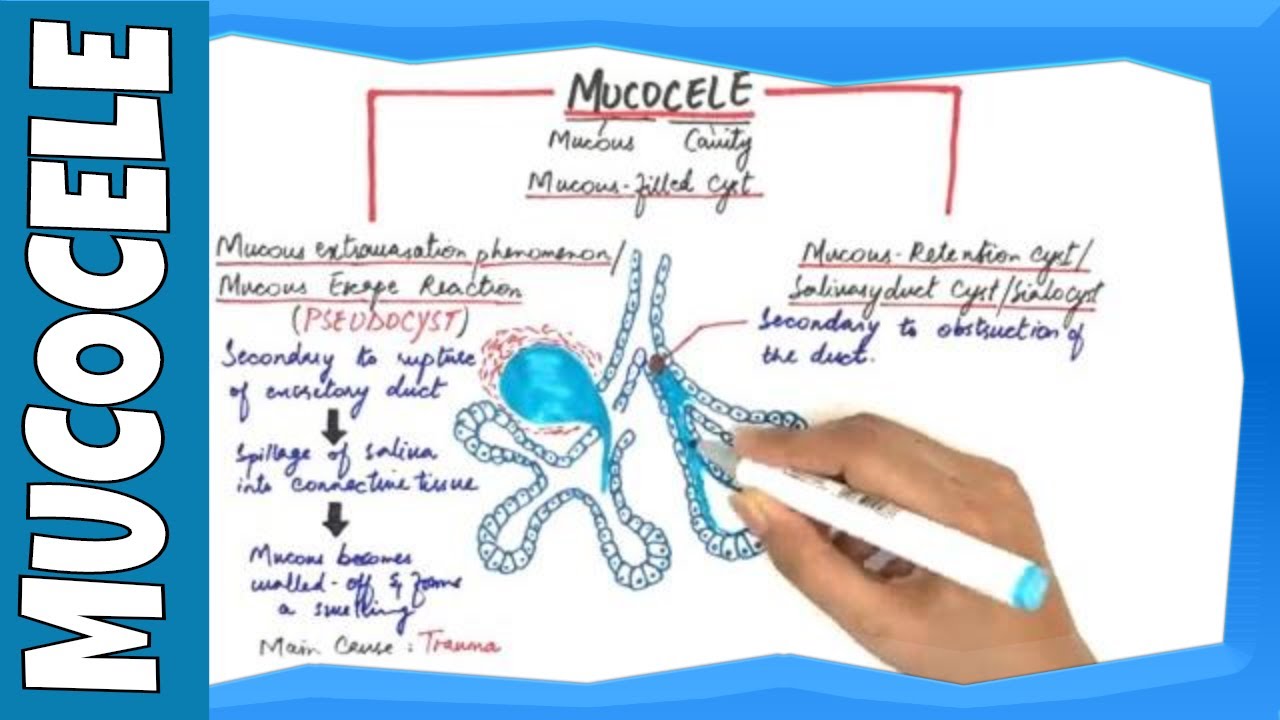 MUCOCELE
MUCOCELE
Mucous Cavity
Mucous-filled Cyst
Mucous extravasation phenomenon/
Mucous Escape Reaction
(PSEUDOCYST)
Secondary to rupture
of excretory duct
Spillage of saliva
into connective tissue
Mucous becomes
walled-off & forms
a swelling
Main Cause : Trauma
Mucous-Retention Cyst/
Salivary duct Cyst/Sialocyst
Secondary to obstruction of
the duct.